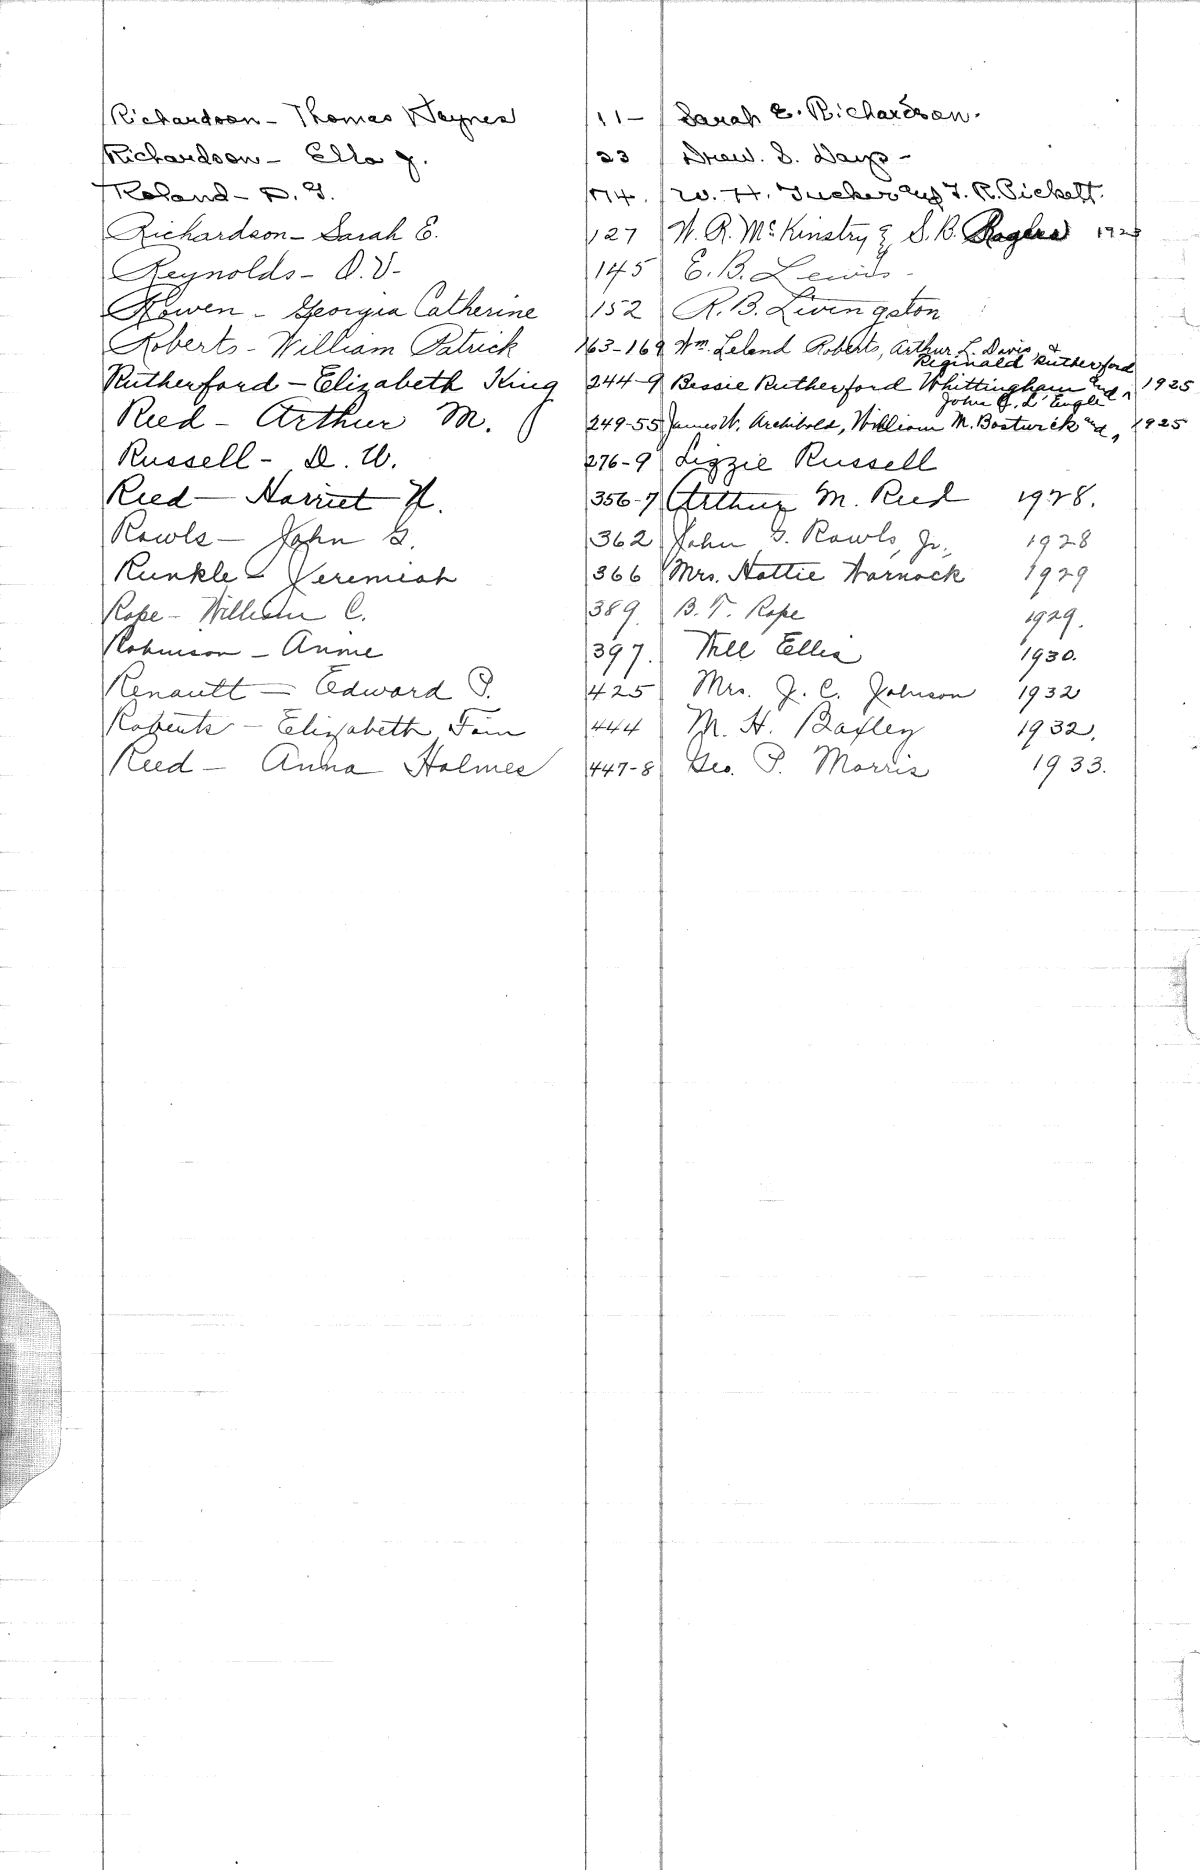 Richardson - Thomas Haynes 11 - Sarah E. Richardson.
Richardson - Ella J. 23 Drew. S. Days -
Roland - D. G. 74. W. H. Tucker and T. R. Pickett.
Richardson - Sarah E. 127 W. R. McKinstry & S. B. Rogers 1923
Reynolds - O. V - 145 E. B. Lewis -
Rowen - Georgia Catherine 152 R. B. Livingston
Roberts - William Patrick 163-169 Wm. Leland Roberts, Arthur L. Davis &
Reginald Rutherford
Rutherford - Elizabeth King 244-9 Bessie Rutherford Whittingham and 1925
John L'Engle
Reed - Arthur M. 249-55 James W. Archibald, William M. Bostwick and, 1925
Russell - D. W. 276-9 Lizzie Russell
Reed - Harriet N. 356-7 Arthur M. Reed 1928.
Rawls - John G. 362 John G. Rawls, Jr., 1928
Runkle - Jeremiah 366 Mrs. Hattie Warnock 1929
Rope - William C. 389. B. T. Rope 1929.
Robinson - Annie 397. Will Ellis 1930.
Renault - Edward P. 425 Mrs. J. C. Johnson 1932
Roberts - Elizabeth 444 M. H. Baxley 1932.
Reed - Anna Holmes 447-8 Geo. P. Morris 1933.